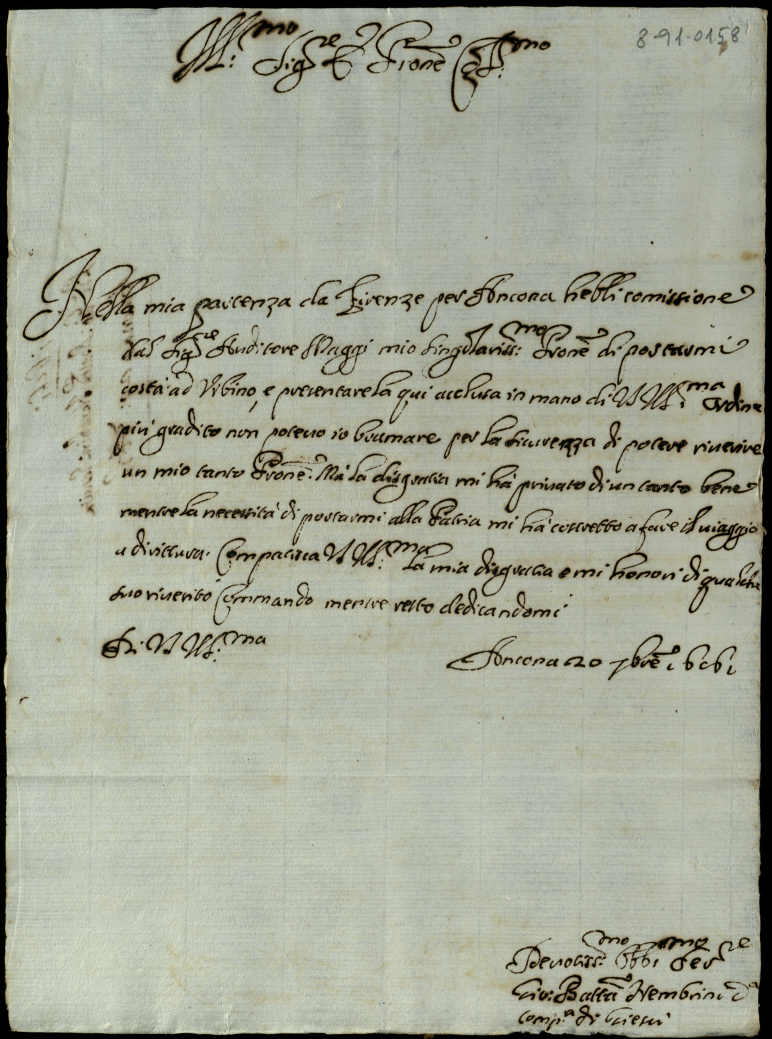 8-91-0158
Ill.mo Sig.re e Prone Col.mo
Nella mia partenza da Firenze per Ancona hebbi comissione
dal Sig.re Auditore Maggi mio singolariss.mo Prone di portarmi
costà ad Urbino, e presentare la qui acclusa in mano di V.S. Ill.ma ordine
più gradito non potevo io bramare per la sicurezza di potere riverire
un mio tanto Prone. Mà la disgratia mi hà privato di un tanto bene
mentre la necessità di portarmi alla Patria mi hà costretto a fare il viaggio
a dirittura. Compatisca V.S. Ill.ma la mia disgratia e mi honori di qualche
suo riverito Commando mentre resto dedicandomi
Di V.S. Ill.ma
Ancona 20 7bre 1661
Devotiss.mo Obb.mo Ser.re
Gio: Batta Nembrini d.a
Comp.a di Giesù